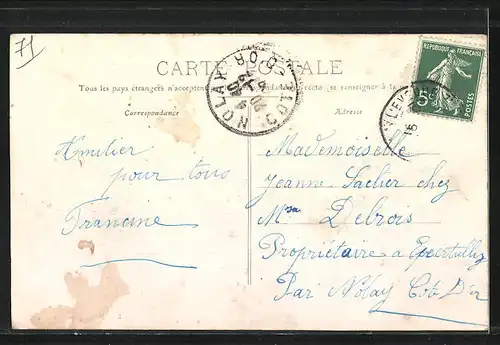 71
CARTE POSTALE
Tous les pays étrangers n'acceptent (se renseigner à la
Correspondance
Adresse
NOLAY
COTE-D'OR
REPUBLIQUE FRANÇAISE
5c
POSTES
Amitier
pour tous
Francine
Mademoiselle
Jeanne Saclier chez
Mr Debrois
Propriétaire a
Par Nolay Cote D'or